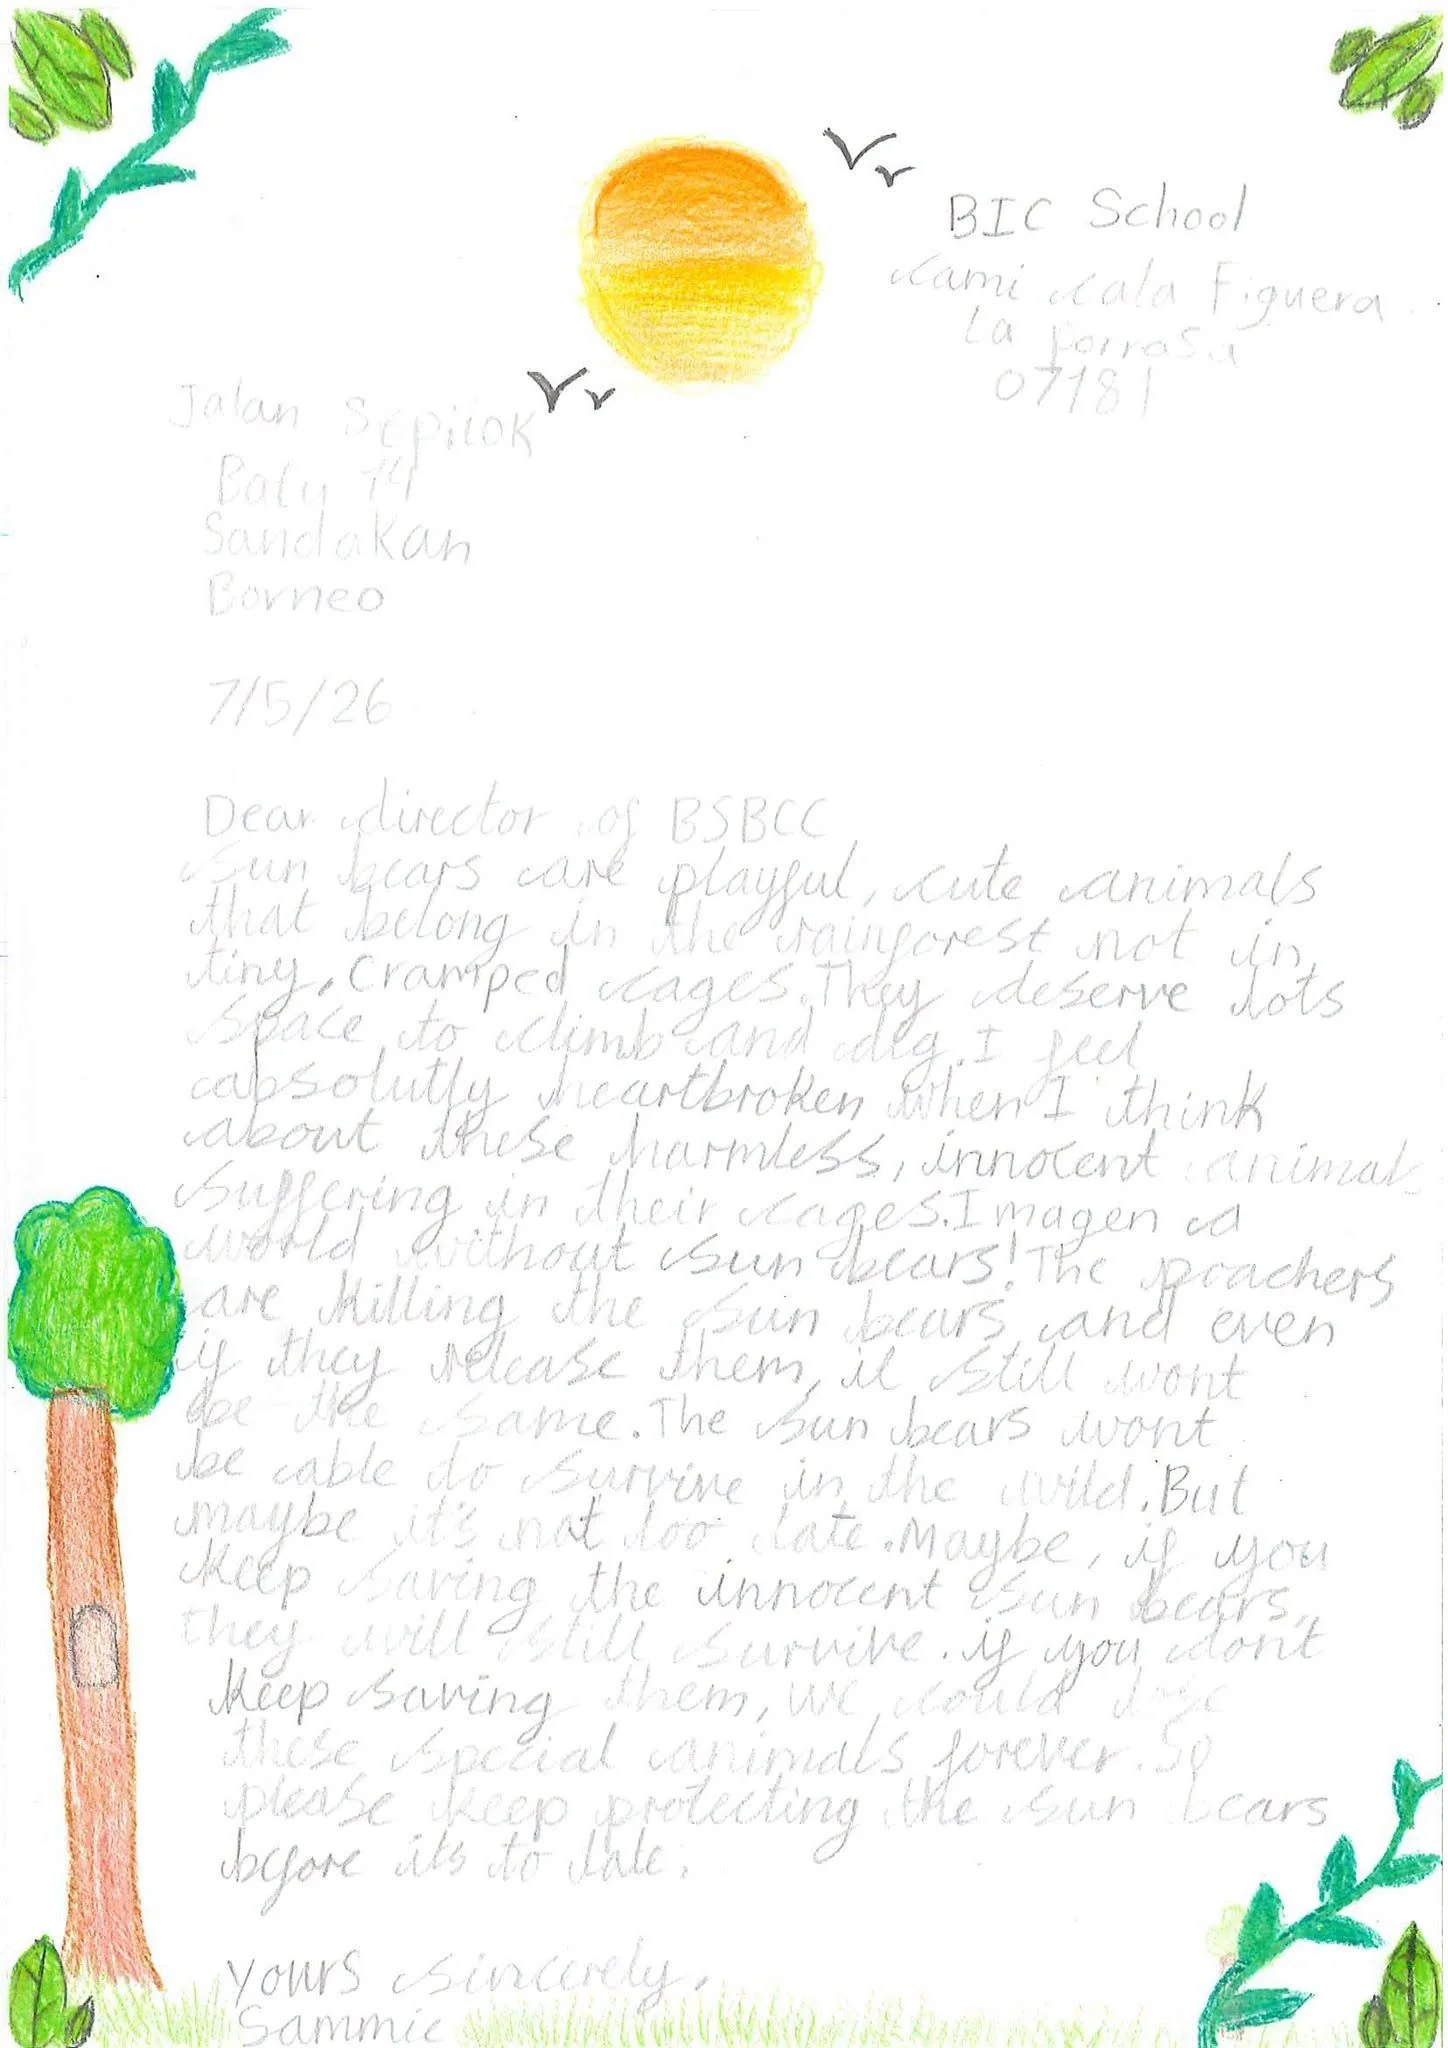 BIC School
cami cala Figuera
La porrasa
07181
Jalan Sepilok
Batu 14
Sandakan
Borneo
7/5/26
Dear director of BSBCC
Sun bears are playful, cute animals
that belong in the rainforest not in
tiny, cramped cages. They deserve lots
space to climb and dig. I feel
absolutly heartbroken when I think
about these harmless, innocent animals
suffering in their cages. Imagen a
world without sun bears! The poachers
are killing the sun bears and even
if they release them, it still wont
be the same. The sun bears wont
be able to survive in the wild. But
maybe it's not too late. Maybe, if you
keep saving the innocent sun bears,
they will still survive. if you don't
keep saving them, we could lose
these special animals forever. So
please keep protecting the sun bears
before its to late.
yours sincerely,
Sammie